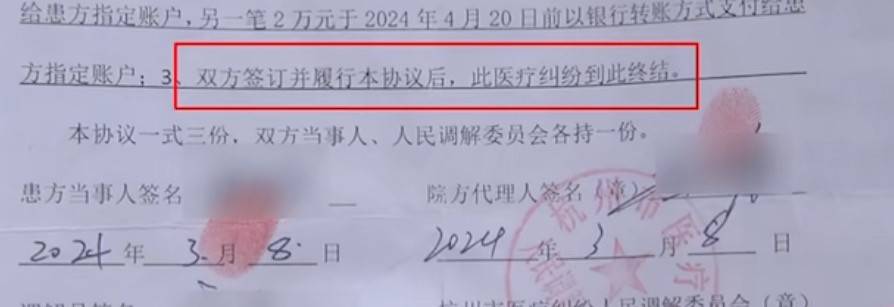 给患方指定账户,另一笔2万元于2024年4月20日前以银行转账方式支付给患
方指定账户;3、双方签订并履行本协议后,此医疗纠纷到此终结。
本协议一式三份,双方当事人、人民调解委员会各持一份。
患方当事人签名 院方代理人签名(章)
2024年3月8日 2024年3月8日
杭州市医疗
杭州市医疗纠纷人民调解委员会(章)